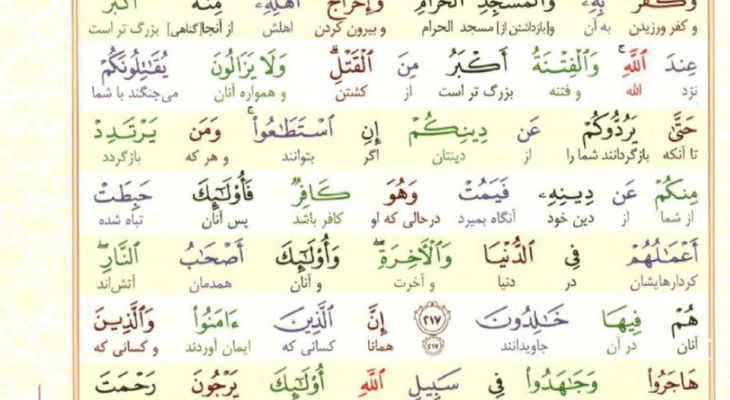 وَكُفۡرُۢ بِهِۦ وَٱلۡمَسۡجِدِ ٱلۡحَرَامِ وَإِخۡرَاجُ أَهۡلِهِۦ مِنۡهُ أَكۡبَرُ
و کفر ورزیدن به آن و[بازداشتن از] مسجد الحرام و بیرون کردن اهلش از آنجا[گناهی] بزرگ تر است
عِندَ ٱللَّهِۚ وَٱلۡفِتۡنَةُ أَكۡبَرُ مِنَ ٱلۡقَتۡلِۗ وَلَا يَزَالُونَ يُقَٰتِلُونَكُمۡ
نزد الله و فتنه بزرگ تر است از کشتن و همواره آنان می‌جنگند با شما
حَتَّىٰ يَرُدُّوكُمۡ عَن دِينِكُمۡ إِنِ ٱسۡتَطَٰعُواْۚ وَمَن يَرۡتَدِدۡ
تا آنکه بازگردانند شما را از دینتان اگر بتوانند و هر که بازگردد
مِنكُمۡ عَن دِينِهِۦ فَيَمُتۡ وَهُوَ كَافِرٞ فَأُوْلَٰٓئِكَ حَبِطَتۡ
از شما از دین خود آنگاه بمیرد درحالی که او کافر باشد پس آنان تباه شده
أَعۡمَٰلُهُمۡ فِي ٱلدُّنۡيَا وَٱلۡأٓخِرَةِۖ وَأُوْلَٰٓئِكَ أَصۡحَٰبُ ٱلنَّارِۖ
کردارهایشان در دنیا و آخرت و آنان همدمان آتش‌اند
هُمۡ فِيهَا خَٰلِدُونَ ٢١٧ إِنَّ ٱلَّذِينَ ءَامَنُواْ وَٱلَّذِينَ
آنان در آن جاویدانند ۲۱۷ همانا کسانی که ایمان آوردند و کسانی که
هَاجَرُواْ وَجَٰهَدُواْ فِي سَبِيلِ ٱللَّهِ أُوْلَٰٓئِكَ يَرۡجُونَ رَحۡمَتَ